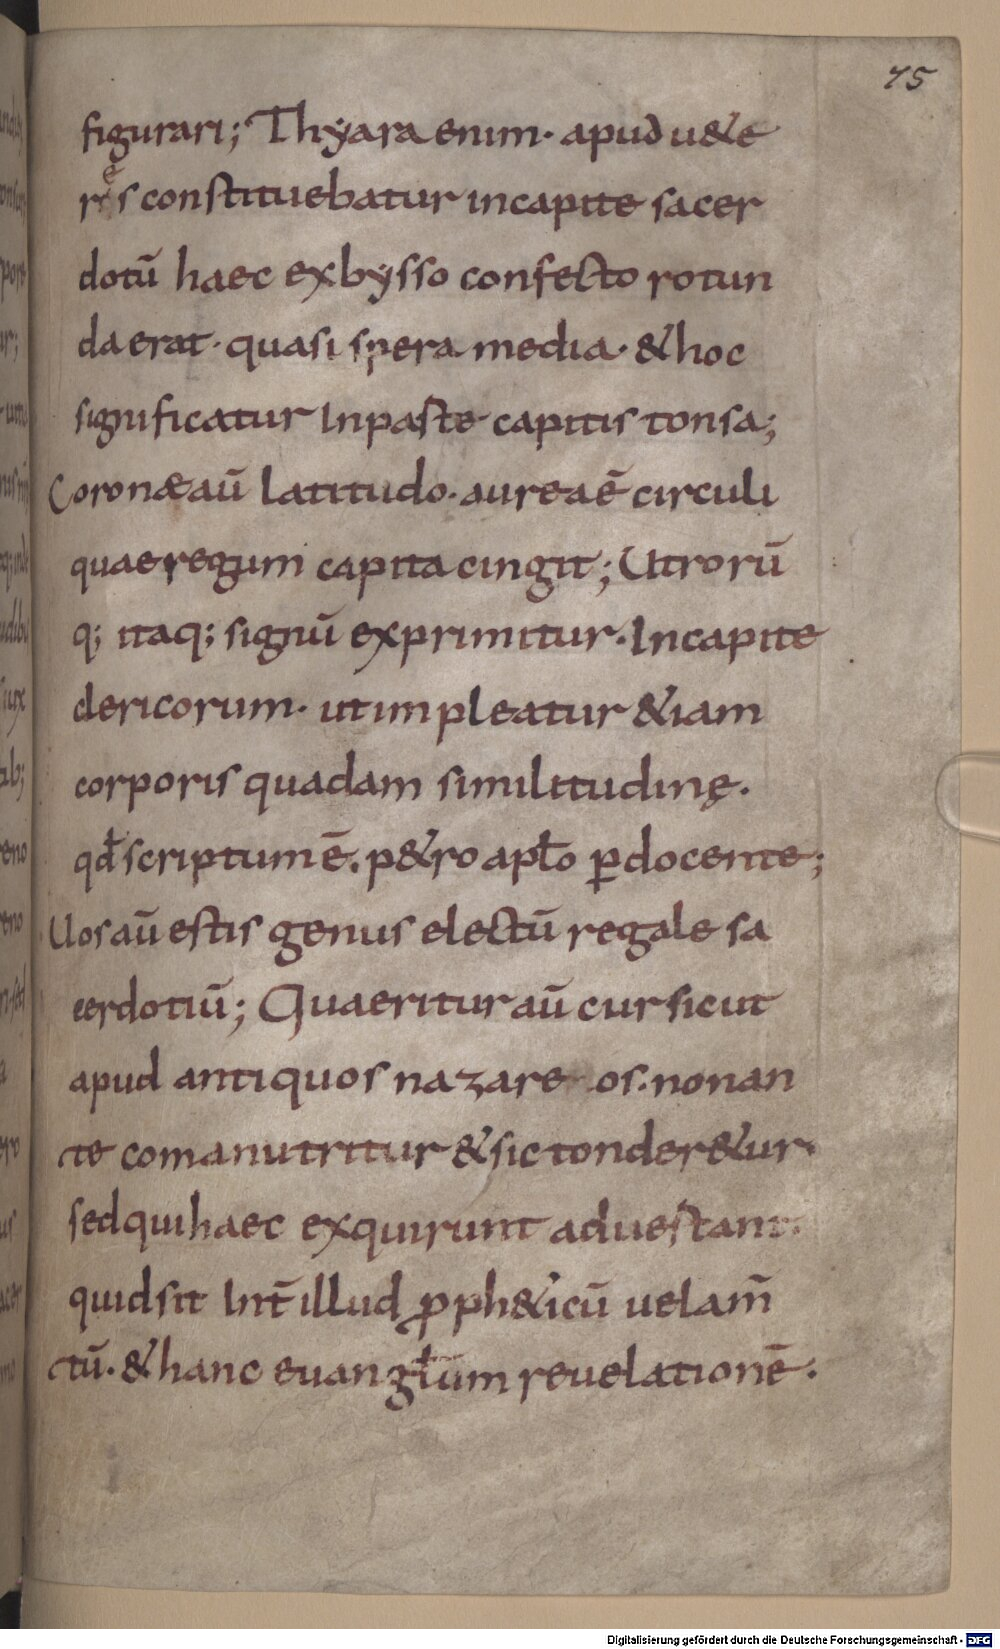 75
figurari; Thyara enim· apud u&e
res constituebatur incapite sacer
dotū haec exbysso confecto rotun
da erat· quasi spera media· & hoc
significatur Inpaste capitis tonsa;
Coronæ aū latitudo· aurea ē circuli
quae regum capita cingit; Utrorū
q; itaq; signū exprimitur· Incapite
clericorum· ut impleatur &iam
corporis quadam similitudinę·
qđ scriptum ē. p&ro aplo ꝑdocente;
Uos aū estis genus electū regale sa
cerdotiū; Quaeritur aū cur sicut
apud antiquos nazare os· non an
te coma nutritur & sic tonder&ur·
sed qui haec exquirunt aduertant·
quid sit Int̄ illud ꝓph&icū uelam̄
tū· & hanc euanglium reuelationē·
Digitalisierung gefördert durch die Deutsche Forschungsgemeinschaft - DFG